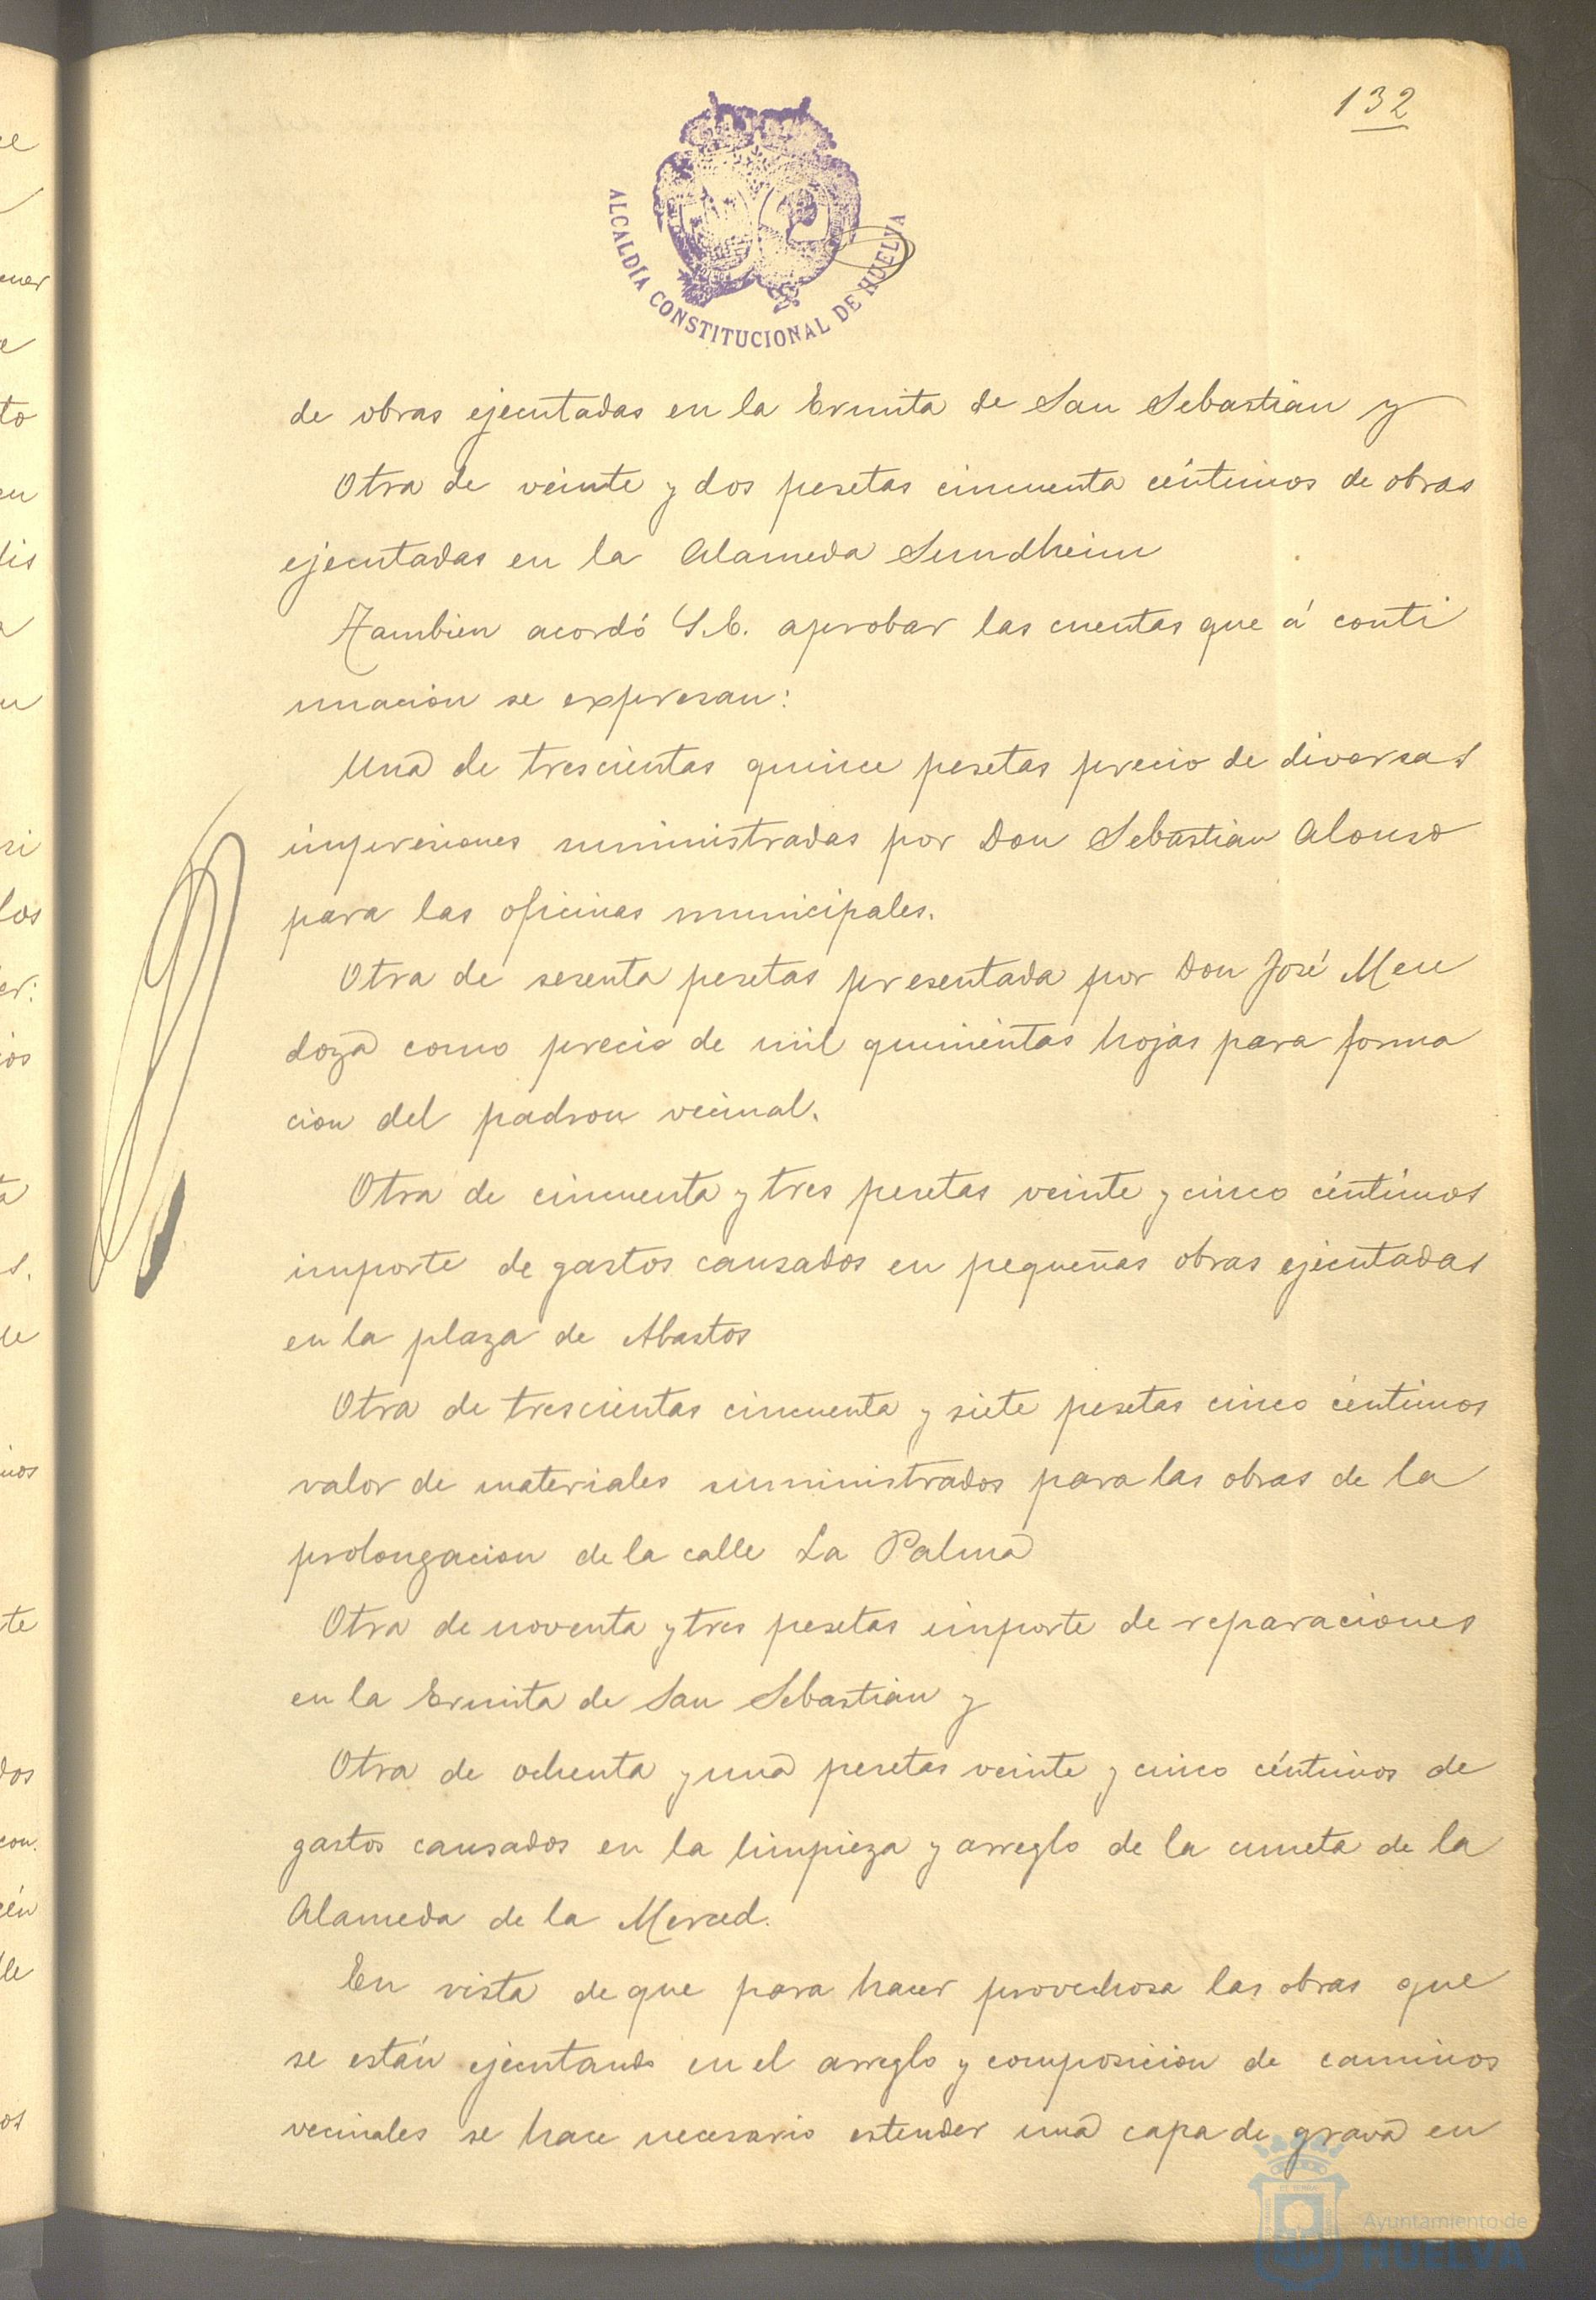 132
ALCALDÍA CONSTITUCIONAL DE HUELVA
de obras ejecutadas en la Ermita de San Sebastián y
Otra de veinte y dos pesetas cincuenta céntimos de obras
ejecutadas en la Alameda Sundheim
Tambien acordó S.E. aprobar las cuentas que á conti
nuacion se expresan:
Una de trescientas quince pesetas precio de diversas
impresiones suministradas por Don Sebastián Alonso
para las oficinas municipales.
Otra de sesenta pesetas presentada por Don José Men
doza como precio de mil quinientas hojas para forma
cion del padron vecinal.
Otra de cincuenta y tres pesetas veinte y cinco céntimos
importe de gastos causados en pequeñas obras ejecutadas
en la plaza de Abastos
Otra de trescientas cincuenta y siete pesetas cinco céntimos
valor de materiales suministrados para las obras de la
prolongacion de la calle La Palma
Otra de noventa y tres pesetas importe de reparaciones
en la Ermita de San Sebastián y
Otra de ochenta y una pesetas veinte y cinco céntimos de
gastos causados en la limpieza y arreglo de la cuneta de la
Alameda de la Merced.
En vista de que para hacer provechosa las obras que
se están ejecutando en el arreglo y composicion de caminos
vecinales se hace necesario estender una capa de grava en
Ayuntamiento de
HUELVA